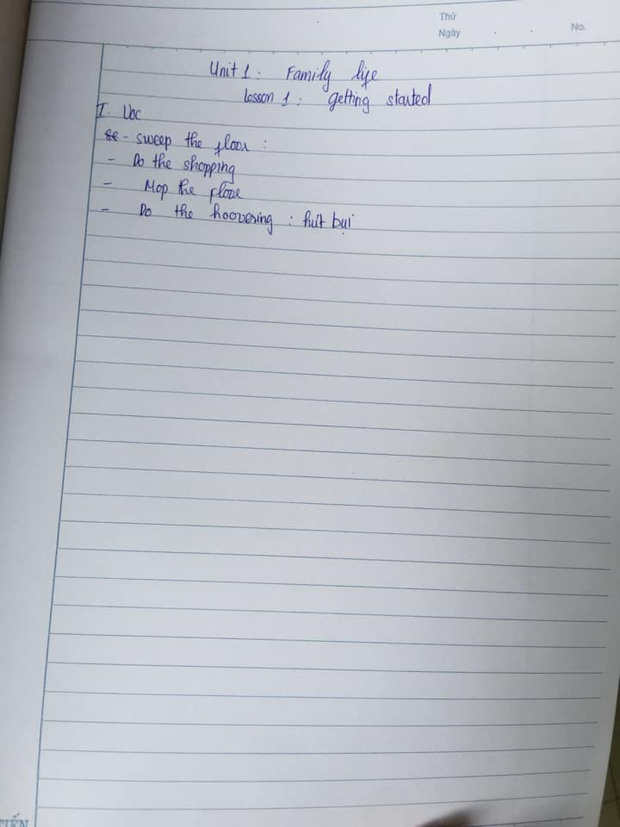 Thứ
Ngày . . No.
Unit 1: Family life
Lesson 1: getting started
I. Voc
se - sweep the floor:
- Do the shopping
- Mop the floor
- Do the hoovering: hút bụi
TIẾN